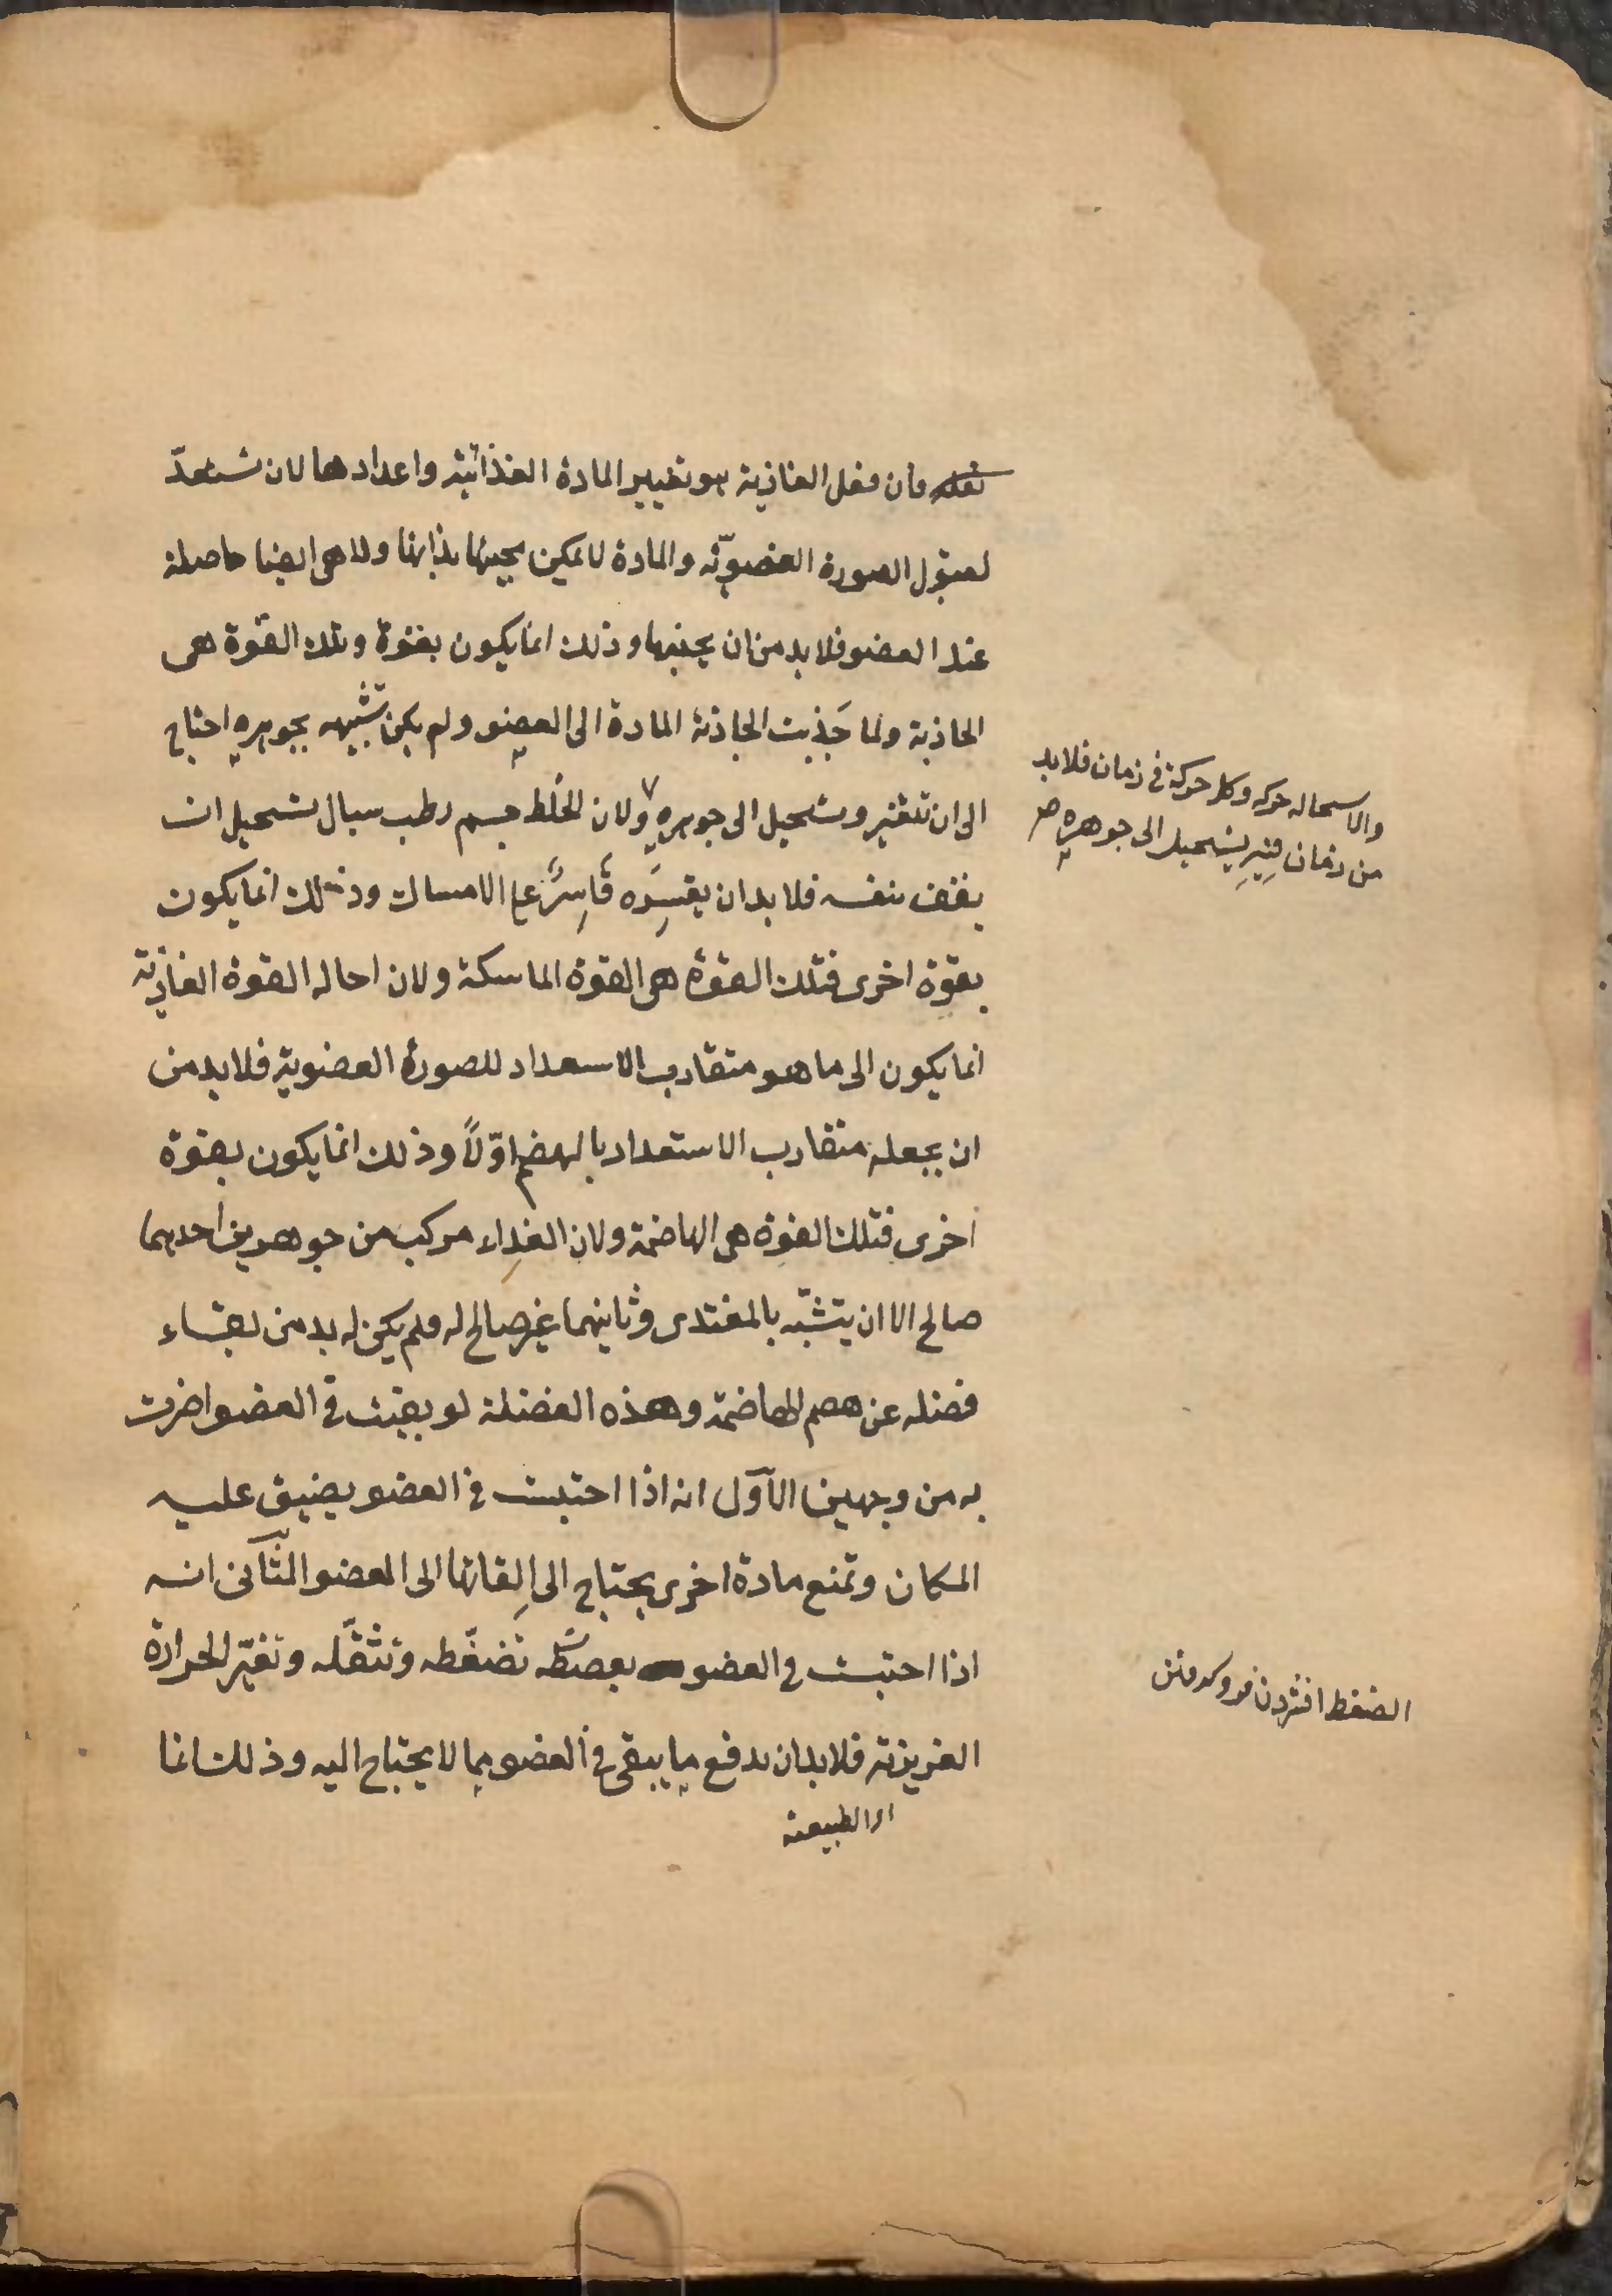 فان فعل الغاذية هو تغيير المادة الغذائية واعدادها لان تستعدّ
لقبول الصورة العضويّة والمادة لا يمكن مجيئها بذاتها ولا هى ايضا حاصلة
عند العضو فلا بد من ان يجذبها وذلك انما يكون بقوة وتلك القوة هى
الجاذبة ولما جَذبت الجاذبة المادة الى العضو ولم يكن تشبهه بجوهره احتاج
الى ان تتغير وتستحيل الى جوهره ولان الخلط جسم رطب سيال يستحيل ان
يقف بنفسه فلا بد ان يقسِرَه قَاسِرٌ على الامساك وذلك انما يكون
بقوة اخرى فتلك القوة هى القوة الماسكة ولان احالة القوة الغاذية
انما يكون الى ما هو متقارب الاستعداد للصورة العضوية فلا بد من
ان يجعله متقارب الاستعداد بالهضم اوّلاً وذلك انما يكون بقوة
اخرى فتلك القوة هى الهاضمة ولان الغذاء مركب من جوهرين احدهما
صالح الا ان يتشبّه بالمغتذى وثانيهما غير صالح له فلم يكن له بد من بقاء
فضله عن هضم الهاضمة وهذه الفضلة لو بقيت فى العضو اضرت
به من وجهين الآوّل انه اذا احتبست فى العضو يضيق عليه
المكان وتمنع مادة اخرى يحتاج الى اِلقائها الى العضو الثّآنى انه
اذا احتبست فى العضو تضغّطه وتثقّله وتغيّر الحرارة
الغريزية فلا بد ان يدفع ما يبقى فى العضو مما لا يحتاج اليه وذلك انما
الطبيعة
والاستحالة حركة وكل حركة فى زمان فلا بد
من زمان فيه يستحيل الى جوهره صح
الضغط افشردن